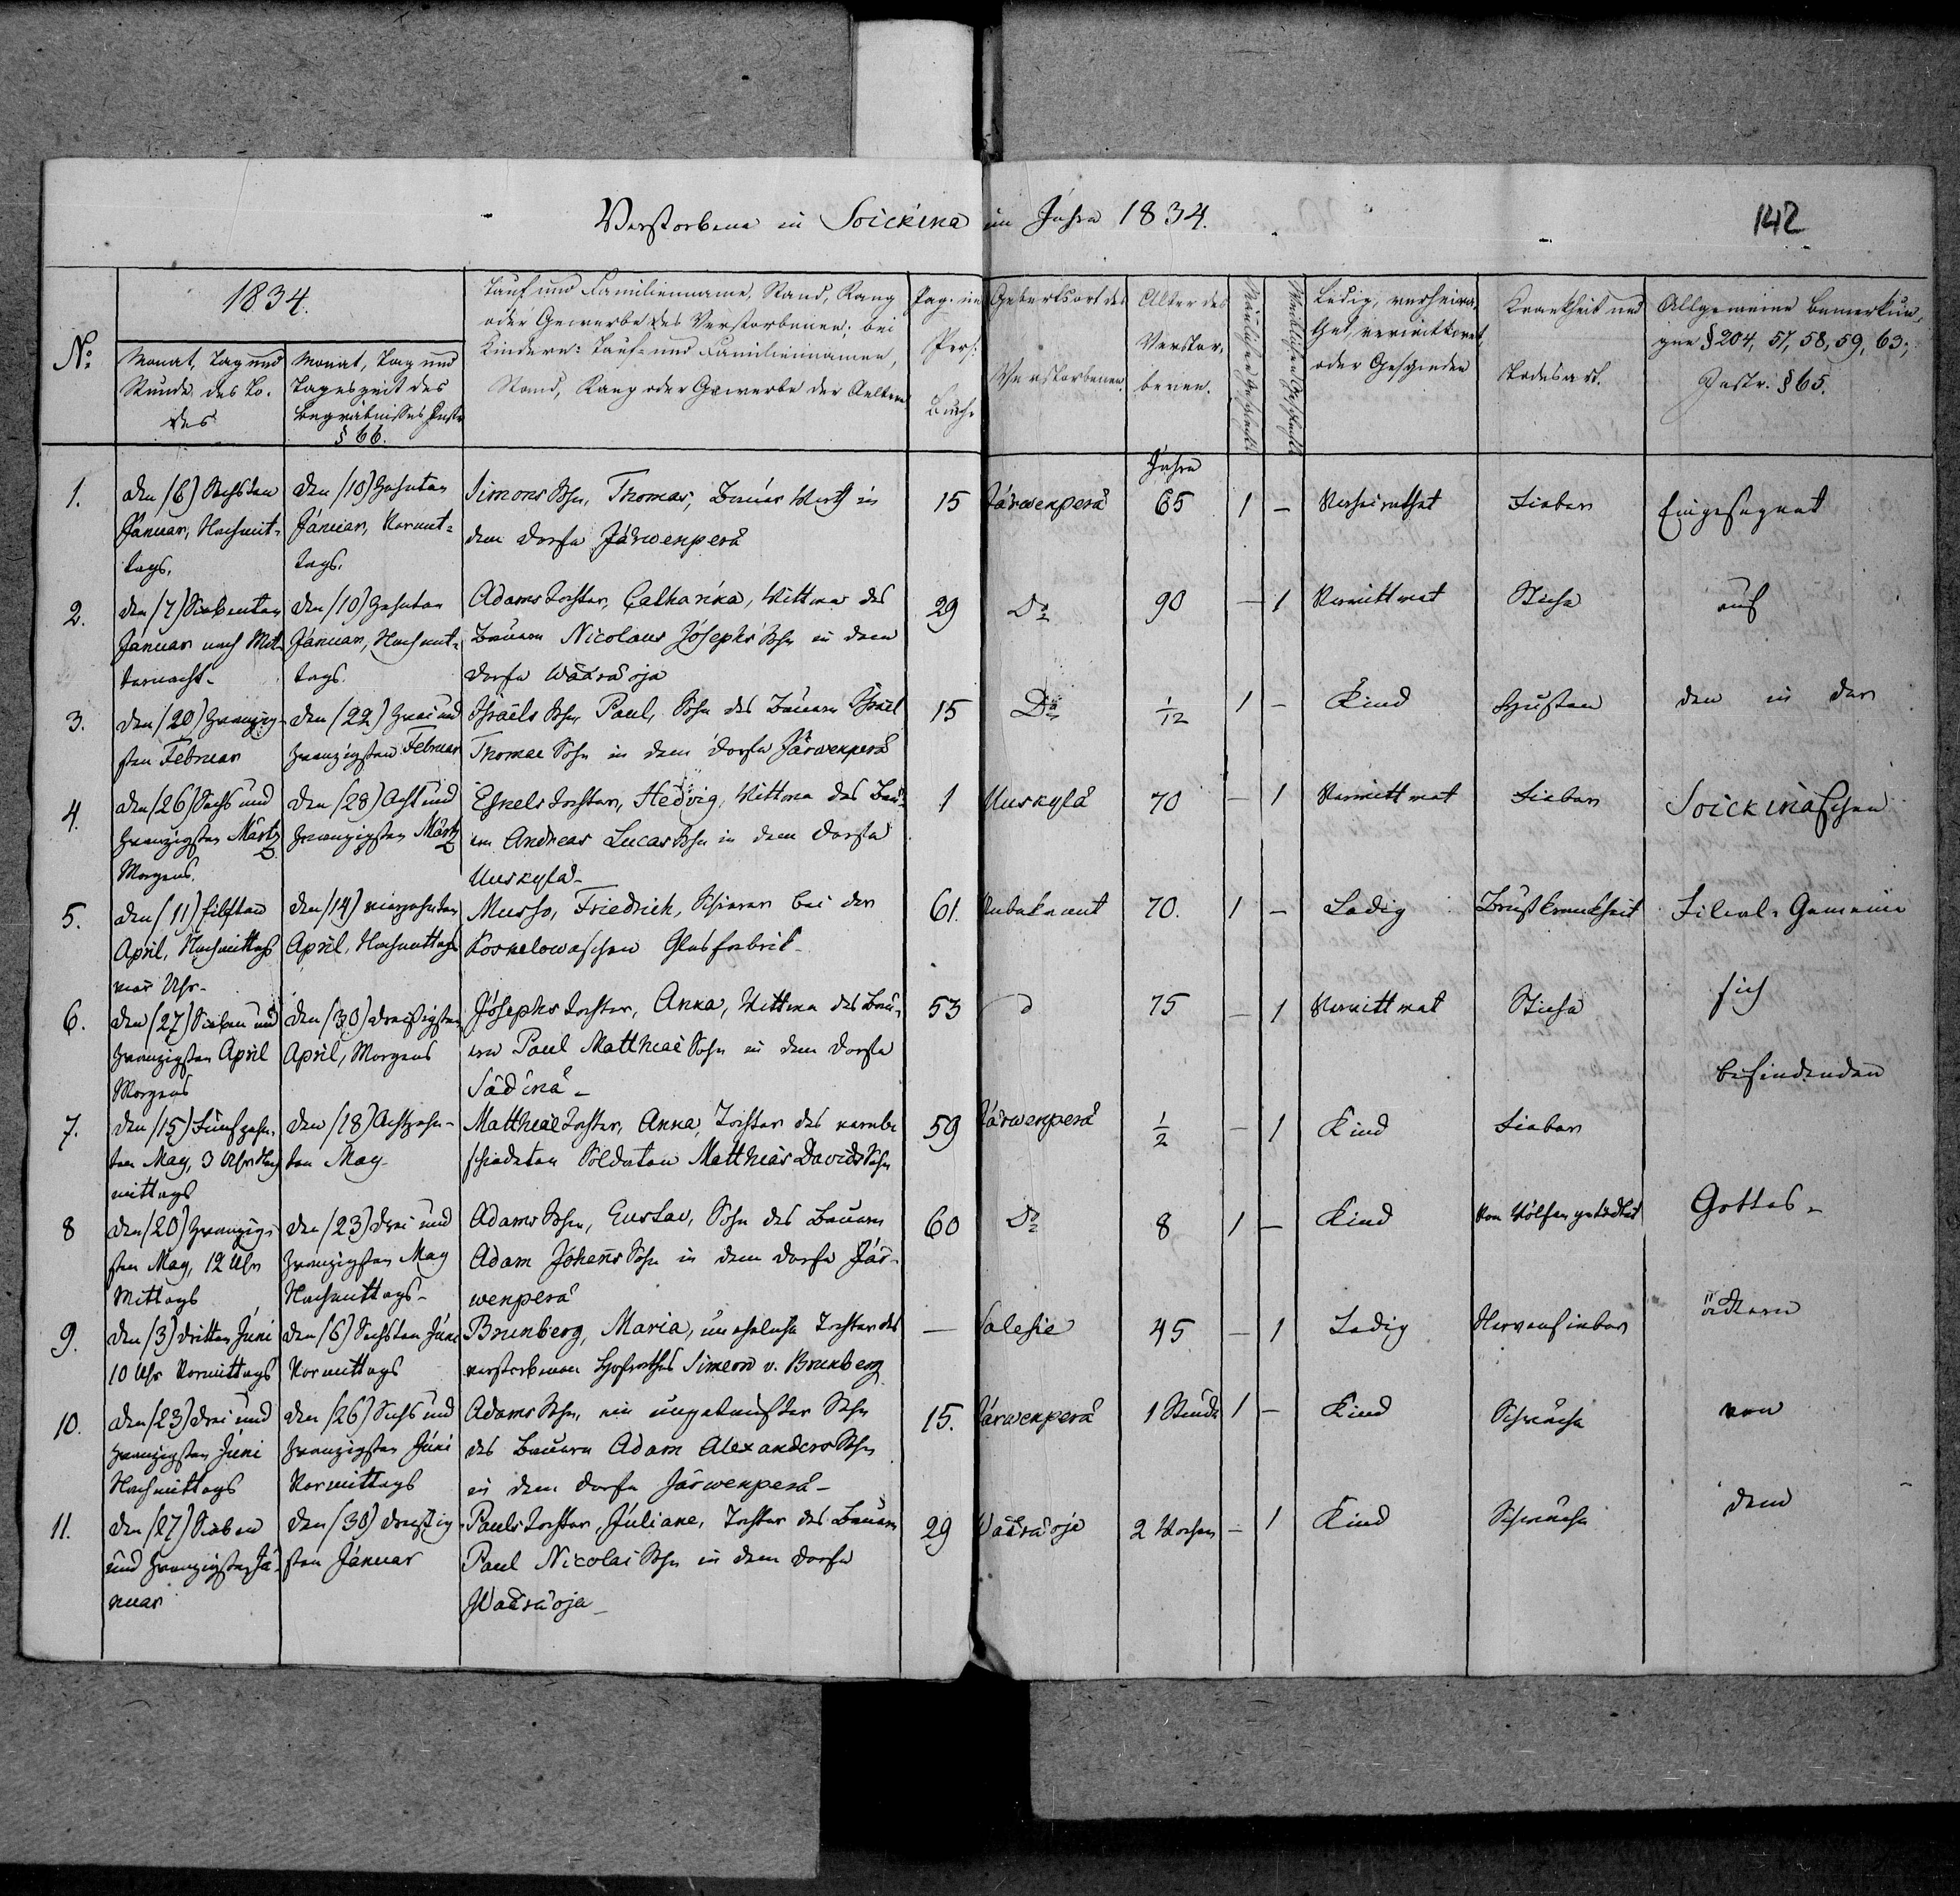 Verstorbene in Soickina im Jahre 1834.
142
No
1834.
Monat, Tag und
Stunde des To-
des
Monat, Tag und
Tageszeit des
Begräbnisses Instr.
§ 66.
Tauf und Familienname, Stand, Rang
oder Gewerbe des Verstorbenen; bei
Kindern: Tauf- und Familiennamen,
Stand, Rang oder Gewerbe der Aeltern
Pag. im
Pers.
Buche
Geburtsort des
Verstorbenen.
Alter des
Verstor-
benen.
Männlichen Geschlechts
Weiblichen Geschlechts
Ledig, verheira-
thet, verwittwet,
oder Geschieden
Krankheit und
Todesart.
Allgemeine Bemerkun-
gen § 204, 57, 58, 59, 63;
Instr. § 65.
1.
den (6) Sechsten
Januar, Nachmit-
tags.
den (10) Zehnten
Januar, Vormit-
tags.
Simons Sohn, Thomas, Bauer Wirth in
dem Dorfe Järwenperä
15
Järwenperä
Jahre
65
1
–
Verheirathet
Fieber
Eingesegnet
2.
den (7) Siebenten
Januar nach Mit-
ternacht-
den (10) Zehnten
Januar, Nachmit-
tags.
Adams Tochter, Catharina, Wittwe des
Bauern Nicolaus Josephs Sohn in dem
Dorfe Wääräoja
29
Do
90
–
1
Verwittwet
Stiche
auf
3.
den (20) Zwanzig-
sten Februar
den (22) Zwei und
zwanzigsten Februar
Israels Sohn, Paul, Sohn des Bauern Israel
Thomae Sohn in dem Dorfe Järwenperä
15
Do
1/12
1
–
Kind
Husten
den in der
4.
den (26) Sechs und
zwanzigsten Märtz
Morgens.
den (28) Acht und
zwanzigsten Märtz
Eskels Tochter, Hedvig, Wittwe des Bau-
ern Andreas Lucas Sohn in dem Dorfe
Uuskylä-
1
Uuskylä
70
–
1
Verwittwet
Fieber
Soickinaschen
5.
den (11) Eilften
April, Nachmittags
vier Uhr-
den (14) vierzehnten
April, Nachmittags
Musso, Friedrich, bei der
Koskelowaschen Glasfabrik-
61.
Unbekannt
70.
1
–
Ledig
Brustkrankheit
Filial-Gemeine
6.
den (27) Sieben und
zwanzigsten April
Morgens
den (30) dreißigsten
April, Morgens
Josephs Tochter, Anna, Wittwe des Bau-
ern Paul Matthiae Sohn in dem Dorfe
Sädinä-
53
75
–
1
Verwittwet
Stiche
sich
befindenden
7.
den (15) Fünfzehn-
ten May, 3 Uhr Nach
mittags
den (18) Achtzehn-
ten May-
Matthiae Tochter, Anna, Tochter des verab
schiedeten Soldaten Matthias Davids Sohn
59
Järwenperä
1/2
–
1
Kind
Fieber
8
den (20) Zwanzig-
sten May, 12 Uhr
Mittags
den (23) drei und
zwanzigsten May
Nachmittags-
Adams Sohn, Gustav, Sohn des Bauern
Adam Johanns Sohn in dem Dorfe Jär-
wenperä
60
Do
8
1
–
Kind
Von Wölfen getödtet
Gottes-
9.
den (3) dritten Juni
10 Uhr Vormittags
den (6) Sechsten Juni
Vormittags
Brunberg, Maria, uneheliche Tochter des
verstorbenen Hofraths Simeon v. Brunberg
—
45
–
1
Ledig
Nervenfieber
äckern
10.
den (23) drei und
zwanzigsten Juni
Nachmittags
den (26) Sechs und
zwanzigsten Juni
Vormittags
Adams Sohn, ein ungetaufter Sohn
des Bauern Adam Alexanders Sohn
in dem Dorfe Järwenperä-
15.
Järwenperä
1 Stunde
1
–
Kind
Schwäche
von
11.
den (27) Sieben
und zwanzigsten Ja-
nuar
den (30) dreißig
sten Januar
Pauls Tochter, Juliane, Tochter des Bauern
Paul Nicolai Sohn in dem Dorfe
Wääräoja-
29
Wääräoja
2 Wochen
–
1
Kind
Schwäche
dem